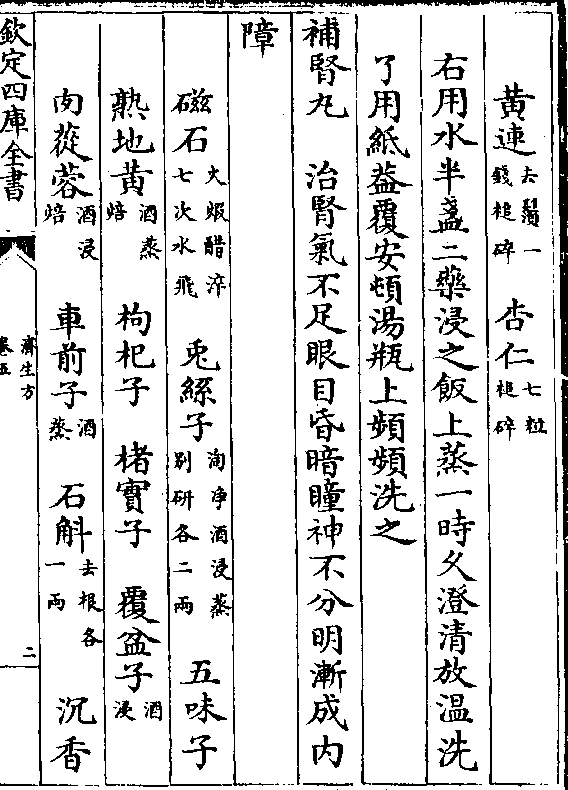 黄連去鬚一錢槌碎 杏仁七粒槌碎
右用水半盞二藥浸之飯上蒸一時久澄清放温洗
了用紙蓋覆安頓湯瓶上頻頻洗之
補腎丸 治腎氣不足眼目昏暗瞳神不分明漸成内
障
磁石火煆醋淬七次水飛 兎絲子淘净酒浸蒸别研各二兩 五味子
熟地黄酒蒸焙 枸杞子 楮實子 覆盆子酒浸
肉蓯蓉酒浸焙 車前子酒蒸 石斛去根各一兩 沉香
欽定四庫全書 濟生方卷五 二